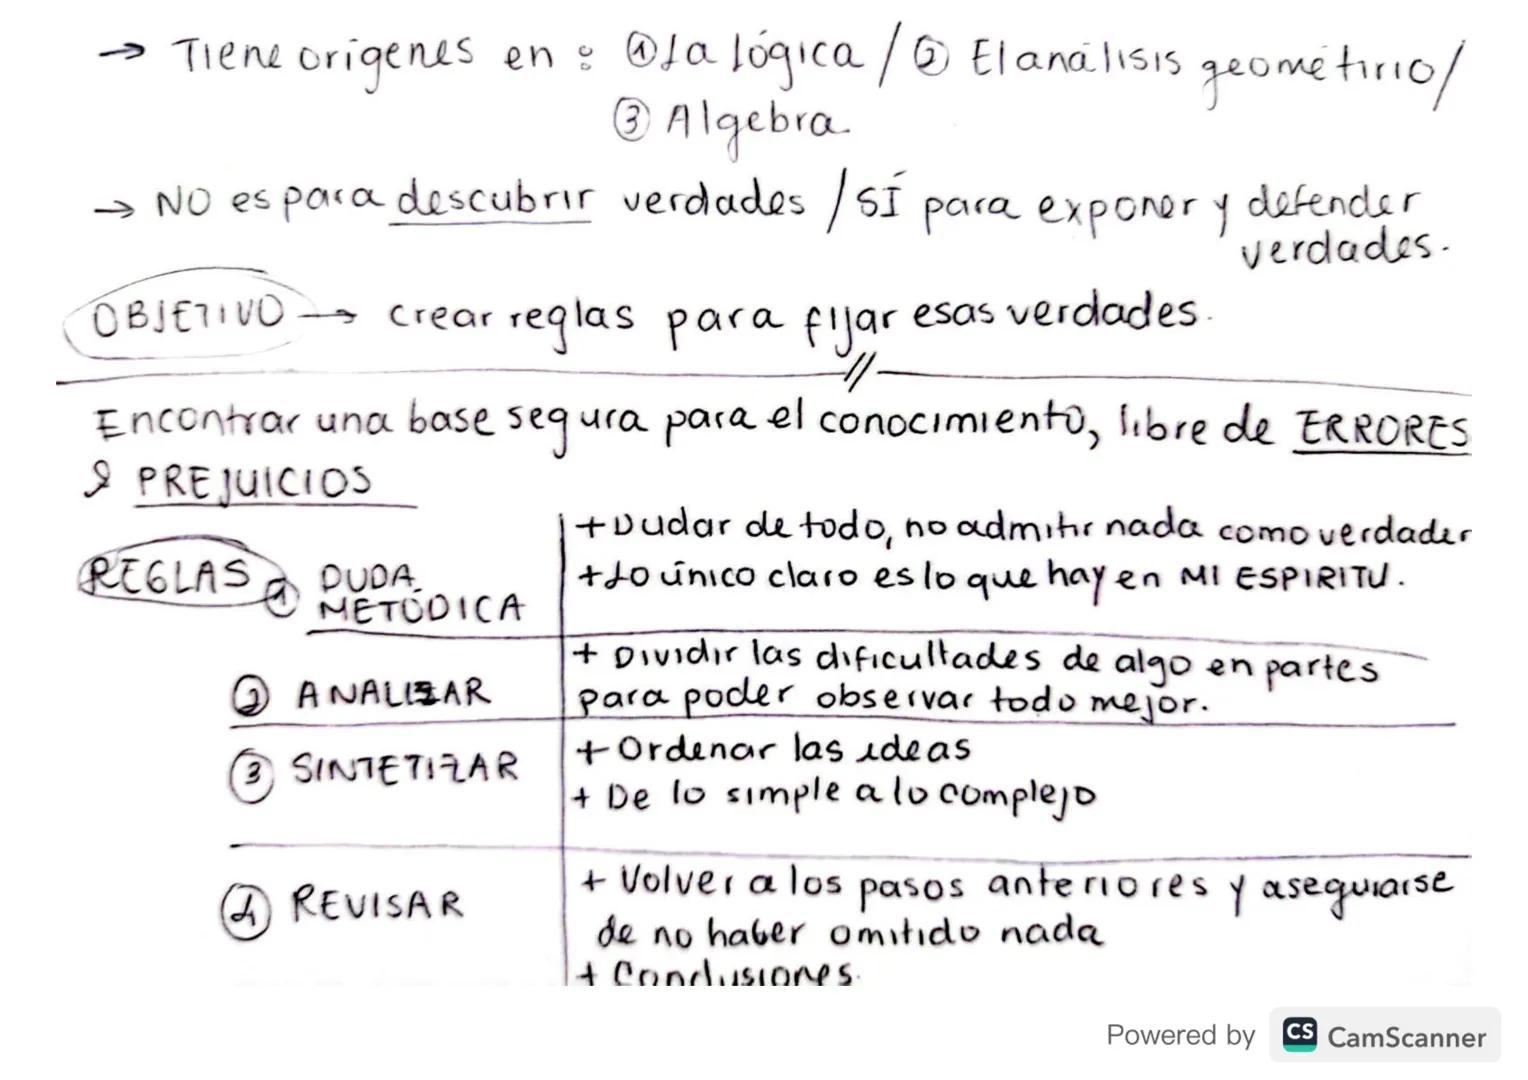 → Tiene orígenes en : ① La lógica / ② El análisis geométirio /
③ Algebra.
→ NO es para descubrir verdades / SÍ para exponer y defender
verdades.
OBJETIVO → crear reglas para fijar esas verdades.
Encontrar una base segura para el conocimiento, libre de ERRORES
& PREJUICIOS
REGLAS ① DUDA METÓDICA
+ Dudar de todo, no admitir nada como verdader
+ Lo único claro es lo que hay en MI ESPIRITU.
② ANALIZAR
+ Dividir las dificultades de algo en partes
para poder observar todo mejor.
③ SINTETIZAR
+ Ordenar las ideas
+ De lo simple a lo complejo
④ REVISAR
+ Volver a los pasos anteriores y asegurarse
de no haber omitido nada
+ Conclusiones.
Powered by CS CamScanner